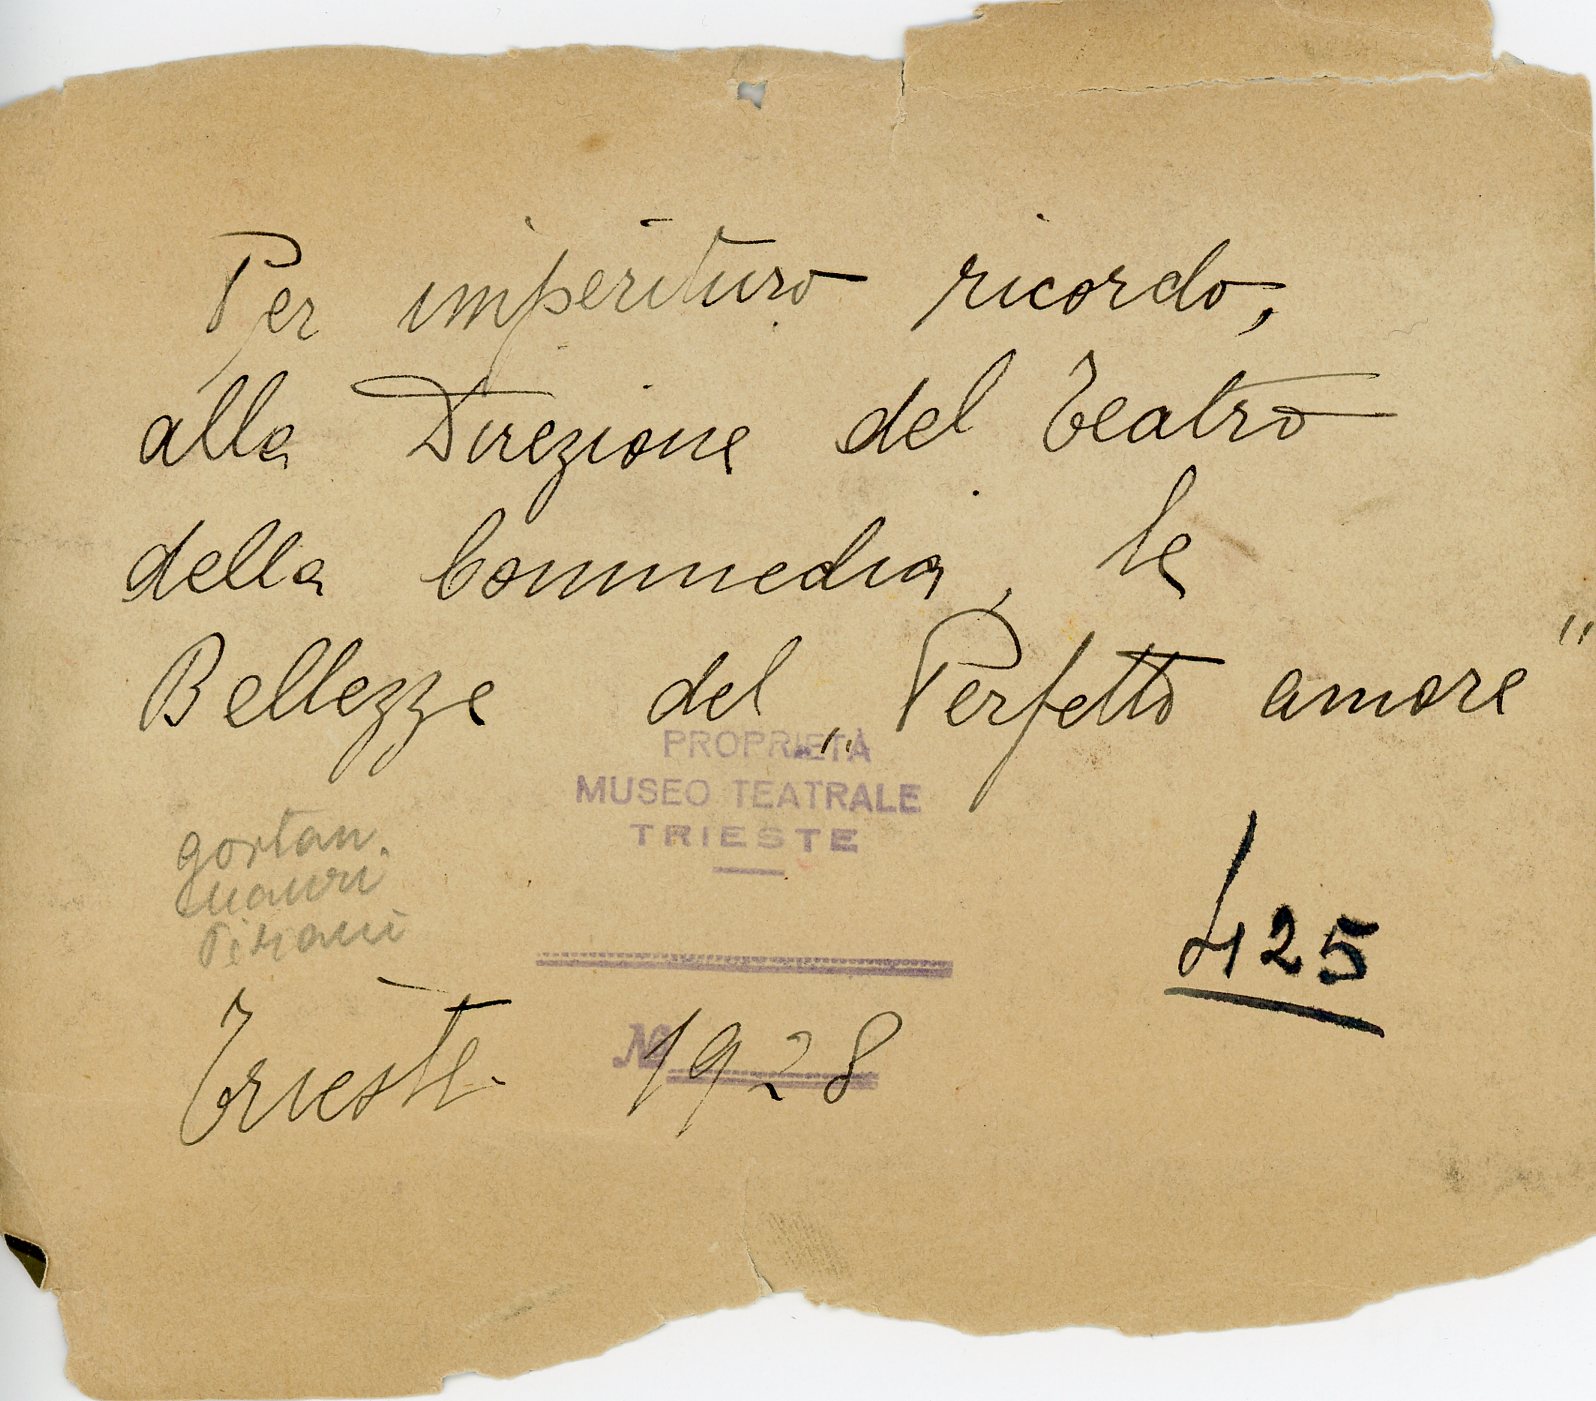 Per imperituro ricordo,
alla Direzione del Teatro
della Commedia, le
Bellezze del „Perfetto amore"
PROPRIETÀ
MUSEO TEATRALE
TRIESTE
gortan
Mauri
Pisani
425
Trieste. 1928
No